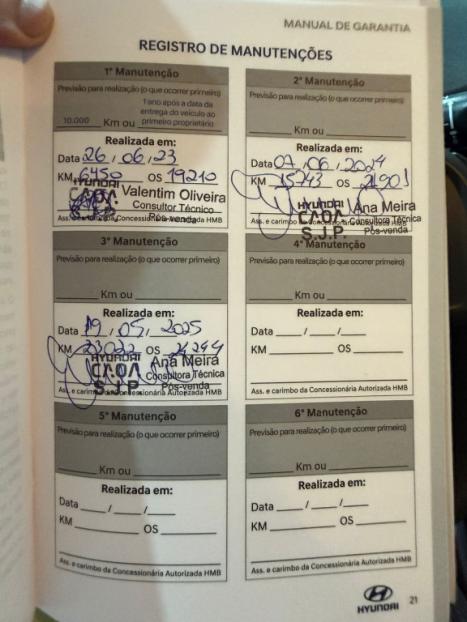 MANUAL DE GARANTIA
REGISTRO DE MANUTENÇÕES
1ª Manutenção
Previsão para realização (o que ocorrer primeiro)
10.000 Km ou 1 ano após a data da entrega do veículo ao primeiro proprietário
Realizada em:
Data 26 / 06 / 23
KM 6450 OS 19210
HYUNDAI
CAOA
Valentim Oliveira
Consultor Técnico
Pós-venda
Ass. e carimbo da Concessionária Autorizada HMB
2ª Manutenção
Previsão para realização (o que ocorrer primeiro)
Km ou
Realizada em:
Data 07 / 06 / 2024
KM 15743 OS 21901
HYUNDAI
CAOA
S.J.P.
Ana Meira
Consultora Técnica
Pós-venda
Ass. e carimbo da Concessionária Autorizada HMB
3ª Manutenção
Previsão para realização (o que ocorrer primeiro)
Km ou
Realizada em:
Data 19 / 05 / 2025
KM OS
HYUNDAI
CAOA
S.J.P.
Ana Meira
Consultora Técnica
Pós-venda
Ass. e carimbo da Concessionária Autorizada HMB
4ª Manutenção
Previsão para realização (o que ocorrer primeiro)
Km ou
Realizada em:
Data / /
KM OS
Ass. e carimbo da Concessionária Autorizada HMB
5ª Manutenção
Previsão para realização (o que ocorrer primeiro)
Km ou
Realizada em:
Data / /
KM OS
Ass. e carimbo da Concessionária Autorizada HMB
6ª Manutenção
Previsão para realização (o que ocorrer primeiro)
Km ou
Realizada em:
Data / /
KM OS
Ass. e carimbo da Concessionária Autorizada HMB
HYUNDAI
21